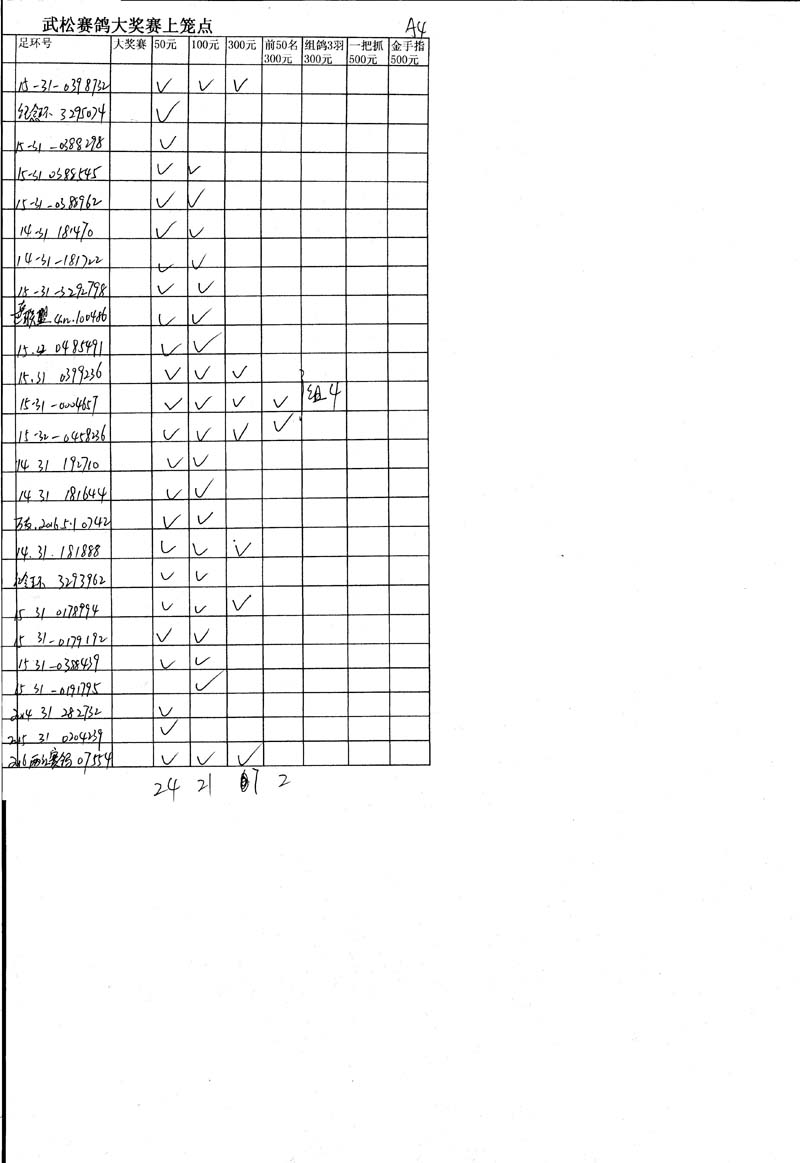 武松赛鸽大奖赛上笼点 A4
足环号 大奖赛 50元 100元 300元 前50名300元 组鸽3羽300元 一把抓500元 金手指500元
15-31-0398732 ✓ ✓ ✓
纪念环 3295074 ✓
15-31-0388298 ✓
15-31 0388545 ✓ ✓
15-31-0388962 ✓ ✓
14-31 181470 ✓ ✓
14-31-181722 ✓ ✓
15-31-3292798 ✓ ✓
联盟 100486 ✓ ✓
15. 0485491 ✓ ✓
15.31 0399236 ✓ ✓ ✓
15-31-0004657 ✓ ✓ ✓ ✓ 组4
15-32-0458236 ✓ ✓ ✓ ✓
14 31 192710 ✓ ✓
14 31 181644 ✓ ✓
2016.5.1 0742 ✓ ✓
14.31.181888 ✓ ✓ ✓
环 3293962 ✓ ✓
15 31 0178994 ✓ ✓ ✓
15 31-0179192 ✓ ✓
15 31-0388439 ✓ ✓
15 31-0191795 ✓
2014 31 282732 ✓
2015 31 0204239 ✓
2016 赛鸽 07554 ✓ ✓ ✓
24 21 7 2